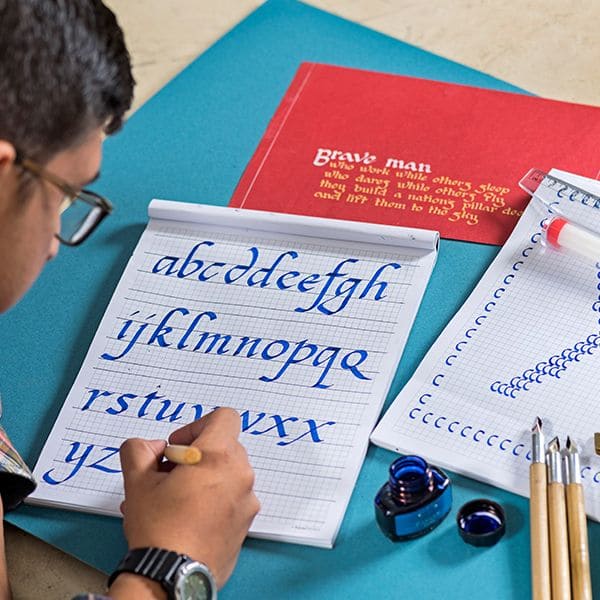 Brave man
who work while others sleep
who dares while others fly
they build a nations pillar dee
and lift them to the sky
abcddeefgh
ijklmnopqq
rstuvwxx
yz